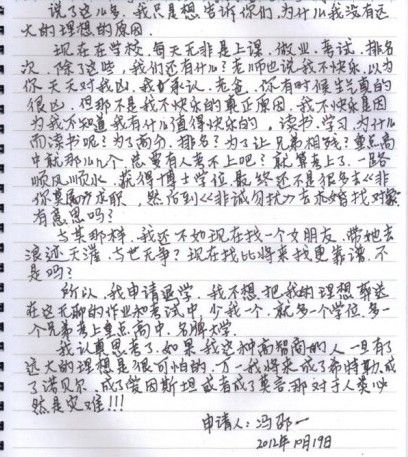 说了这么多,我只是想告诉你们,为什么我没有远
大的理想的原因.
现在在学校,每天无非是上课,做业,考试,排名
次,除了这些,我们还有什么?老师也说我不快乐,以为
你天天对我凶,我承认,老爸,你有时候生气真的
很凶,但那不是我不快乐的真正原因,我不快乐是因
为我不知道我有什么值得快乐的,读书,学习,为什么
而读书呢?为了高分,排名?为了让兄弟相残?重点高
中就那么几个,总要有人考不上吧?就算考上了,一路
顺风顺水,获得博士学位,最终还不是很多去《非
你莫属》求职,然后到《非诚勿扰》去求婚找对象
有意思吗?
与其那样,我还不如现在找一个女朋友,带她去
浪迹天涯,与世无争?现在找比将来找更靠谱,不
是吗?
所以,我申请退学,我不想把我的理想葬送
在这无聊的作业和考试中,少我一个,就多一个学位,多一
个兄弟考上重点高中,名牌大学.
我认真思考了,如果我这种高智商的人一旦有了
远大的理想是很可怕的,万一我将来成了希特勒,成
了诺贝尔,成了爱因斯坦或者成了莫言,那对于人类必
然是灾难!!!
申请人:冯邵一
2012年10月19日